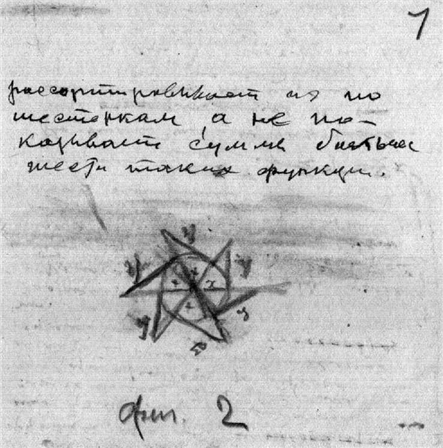 1
рассортировывает их по
шестеркам а не по-
казывает суммы больше
шести таких функций.
y
y
y
x
x
x
x
y
y
фиг. 2